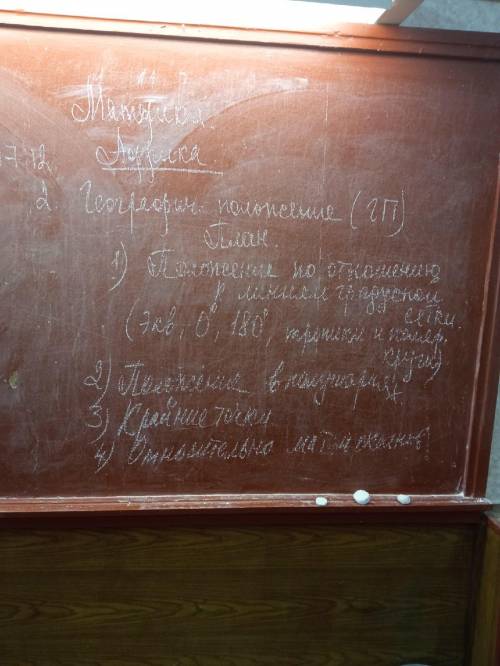 2. Географич. положение (ГП)
План.
1) Положение по отношению
к линиям градусной
сетки.
(Экв, 0°, 180°, тропики и поляр.
круги)
2) Положение в полушариях
3) Крайние точки
4) Относительно мат. и океанов